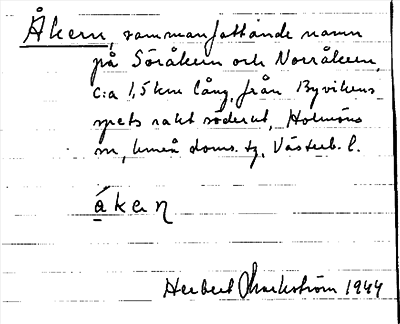 Åkern, sammanfattande namn
på Söråkern och Norråkern,
c:a 1,5 km lång, från Byvikens
spets rakt söderut, Holmöns
sn, Umeå doms. tg, Västerb. l.
åkeɳ
Herbert Markström 1944